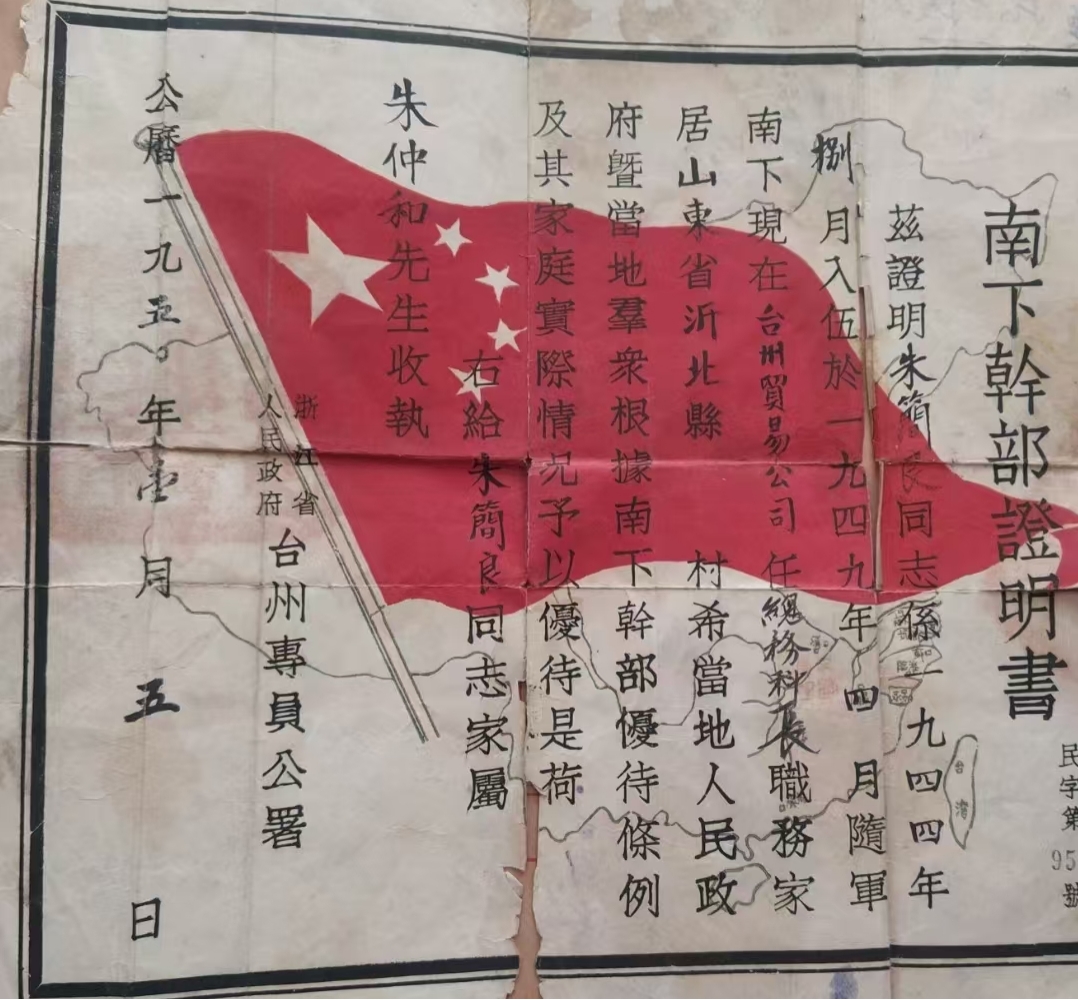 南下幹部證明書
民字第95號
茲證明朱簡良同志係一九四四年
捌月入伍於一九四九年四月隨軍
南下現在台州貿易公司任總務科長職務家
居山東省沂北縣 村希當地人民政
府暨當地羣衆根據南下幹部優待條例
及其家庭實際情况予以優待是荷
右給朱簡良同志家屬
朱仲和先生收執
浙江省
人民政府
台州專員公署
公曆一九五〇年壹月五日
台灣